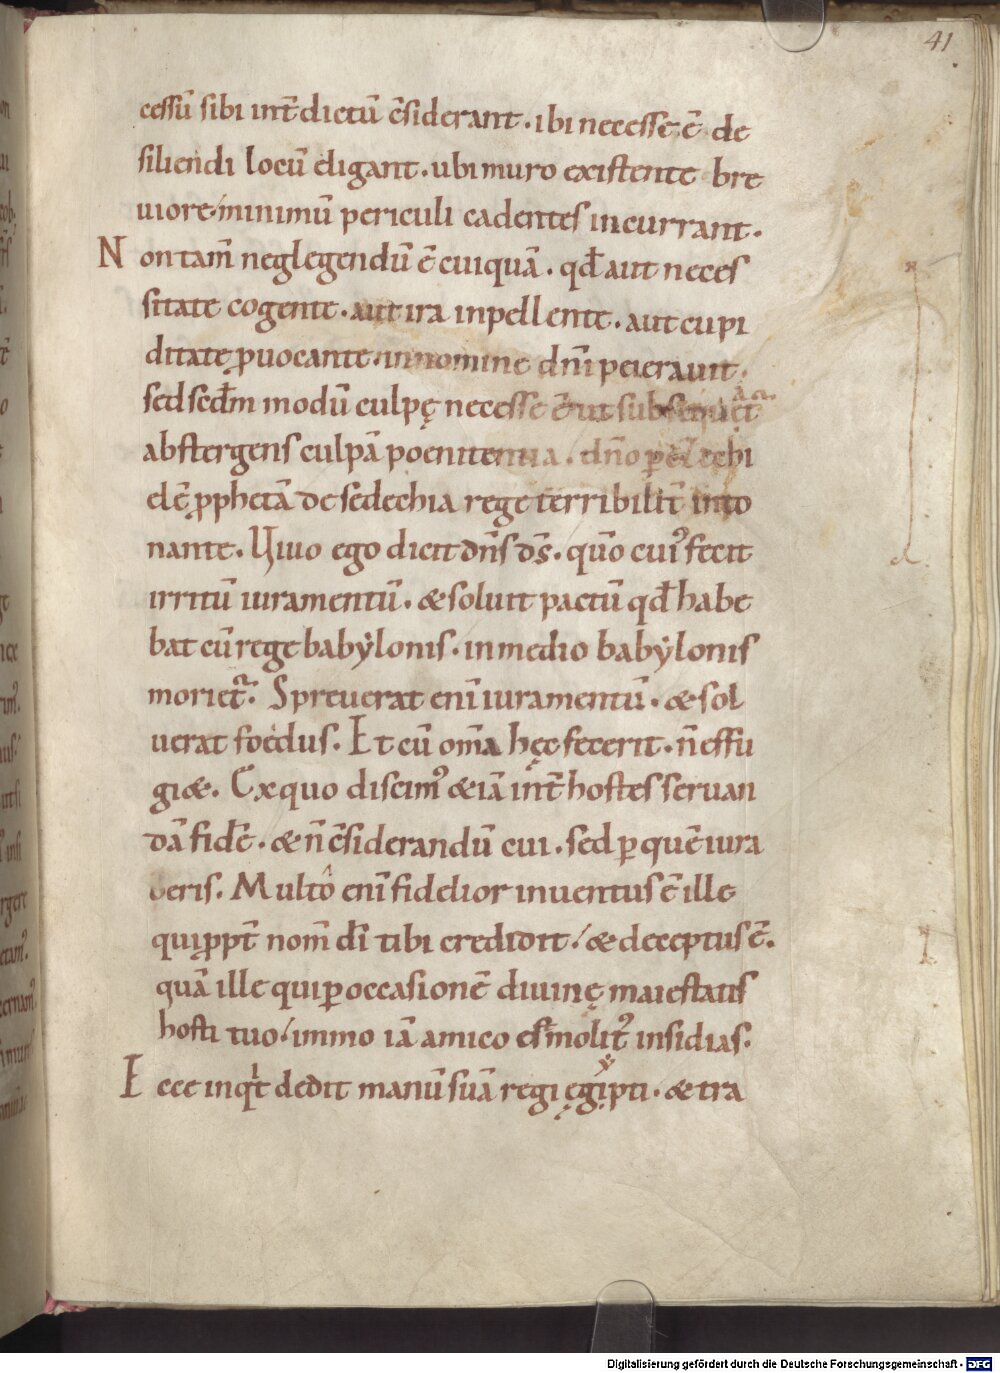 41
cessū sibi int̄dictū c̄siderant. ibi necesse ē de
siliendi locū eligant. ubi muro existente bre
uiore minimū periculi cadentes incurrant.
Non tam̄ neglegendū ē cuiquā. qđ aut neces
sitate cogente. aut ira inpellente. aut cupi
ditate ꝓuocante. in nomine dn̄i peierauit.
sed sedm̄ modū culpę necesse ē ut
abstergens culpā poenitentia. dn̄o ezechi
elē ꝓphetā de sedechia rege terribilit̄ into
nante. Uiuo ego dicit dn̄s d̄s. qm̄o cuiꝰ fecit
irritū iuramentū. & soluit pactū qđ habe
bat cū rege babẏlonis. in medio babẏlonis
morietᷣ. Spreuerat eni̅ iuramentū. & sol
uerat foedus. Et cū om̅a hęc fecerit. n̄ effu
gi&. Ex quo discimꝰ & iā int̄ hostes seruan
dā fidē. & n̄ c̄siderandū cui. sed ꝑ quē iura
ueris. Multo eni̅ fidelior inuentus ē ille
qui ꝓpt̄ nom̄ dī tibi credidit. & deceptus ē.
quā ille qui ꝑ occasionē diuinę maiestatis
hosti tuo. immo iā amico es̄ molitꝰ insidias.
Ecce inqͥt dedit manū suā regi ęgipti. & tra
Digitalisierung gefördert durch die Deutsche Forschungsgemeinschaft - DFG